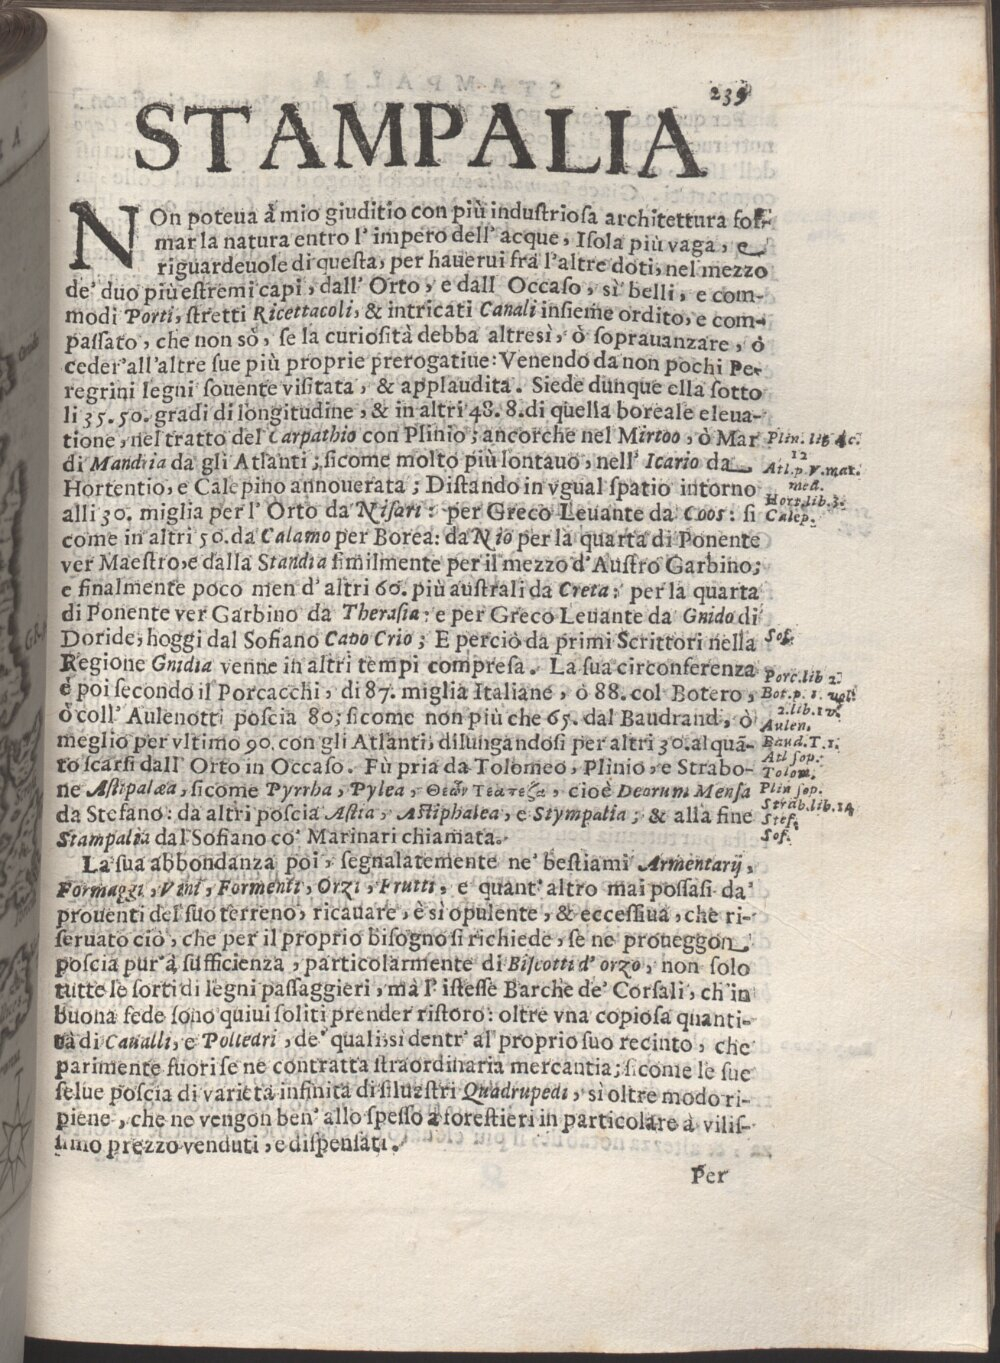 239
STAMPALIA
NOn poteua à mio giuditio con più industriosa architettura for-
mar la natura entro l'impero dell'acque, Isola più vaga, e
riguardeuole di questa, per hauerui frà l'altre doti, nel mezzo
de' duo più estremi capi, dall'Orto, e dall'Occaso, sì belli, e com-
modi Porti, stretti Ricettacoli, & intricati Canali insieme ordito, e com-
passato, che non sò, se la curiosità debba altresì, ò soprauanzare, ò
ceder'all'altre sue più proprie prerogatiue: Venendo da non pochi Pe-
regrini legni souente visitata, & applaudita. Siede dunque ella sotto
li 35. 50. gradi di longitudine, & in altri 48. 8. di quella boreale eleua-
tione, nel tratto del Carpathio con Plinio; ancorche nel Mirtoo, ò Mar Plin. lib 4c.
12
di Mandria da gli Atlanti; sicome molto più lontano, nell'Icario da Atl.p.V.mar.
med.
Hortentio, e Calepino annouerata; Distando in vgual spatio intorno Hort.lib.3.
alli 30. miglia per l'Orto da Nisari: per Greco Leuante da Coos: sì Calep.
come in altri 50. da Calamo per Borea: da Nio per la quarta di Ponente
ver Maestro, e dalla Standia similmente per il mezzo d'Austro Garbino;
e finalmente poco men d'altri 60. più australi da Creta; per la quarta
di Ponente ver Garbino da Therasia: e per Greco Leuante da Gnido di
Doride, hoggi dal Sofiano Cavo Crio; E perciò da primi Scrittori nella Sof.
Regione Gnidia venne in altri tempi compresa. La sua circonferenza Porc.lib 2.
è poi secondo il Porcacchi, di 87. miglia Italiane, ò 88. col Botero, Bot.p. 1. vol.
2.lib.1.
ò coll'Aulenotti poscia 80; sicome non più che 65. dal Baudrand, ò Aulen.
meglio per vltimo 90. con gli Atlanti, dilungandosi per altri 30. alquã- Baud.T.1.
Atl sop.
to scarsi dall'Orto in Occaso. Fù pria da Tolomeo, Plinio, e Strabo- Tolom.
ne Astipalæa, sicome Pyrrha, Pylea, Θεῶν Τεάπεζα, cioè Deorum Mensa Plin sop.
Strab.lib.14
da Stefano: da altri poscia Astia, Astiphalea, e Stympalia; & alla fine Stef.
Stampalia dal Sofiano co' Marinari chiamata. Sof.
La sua abbondanza poi, segnalatemente ne' bestiami Armentarij,
Formaggi, Vini, Formenti, Orzi, Frutti, e quant'altro mai possasi da'
prouenti del suo terreno, ricauare, è sì opulente, & eccessiua, che ri-
seruato ciò, che per il proprio bisogno si richiede, se ne proueggon
poscia pur'à sufficienza, particolarmente di Biscotti d'orzo, non solo
tutte le sorti di legni passaggieri, mà l'istesse Barche de' Corsali, ch'in
buona fede sono quiui soliti prender ristoro: oltre vna copiosa quanti-
tà di Caualli, e Polledri, de' quali sì dentr'al proprio suo recinto, che
parimente fuori se ne contratta straordinaria mercantia; sicome le sue
selue poscia di varietà infinita di siluestri Quadrupedi, sì oltre modo ri-
piene, che ne vengon ben'allo spesso a forestieri in particolare à vilis-
simo prezzo venduti, e dispensati.
Per